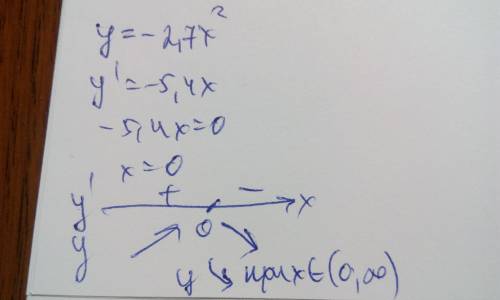 y = -2,7x²
y' = -5,4x
-5,4x = 0
x = 0
y' + - x
y ↗ 0 ↘
y ↘ при x ∈ (0, ∞)